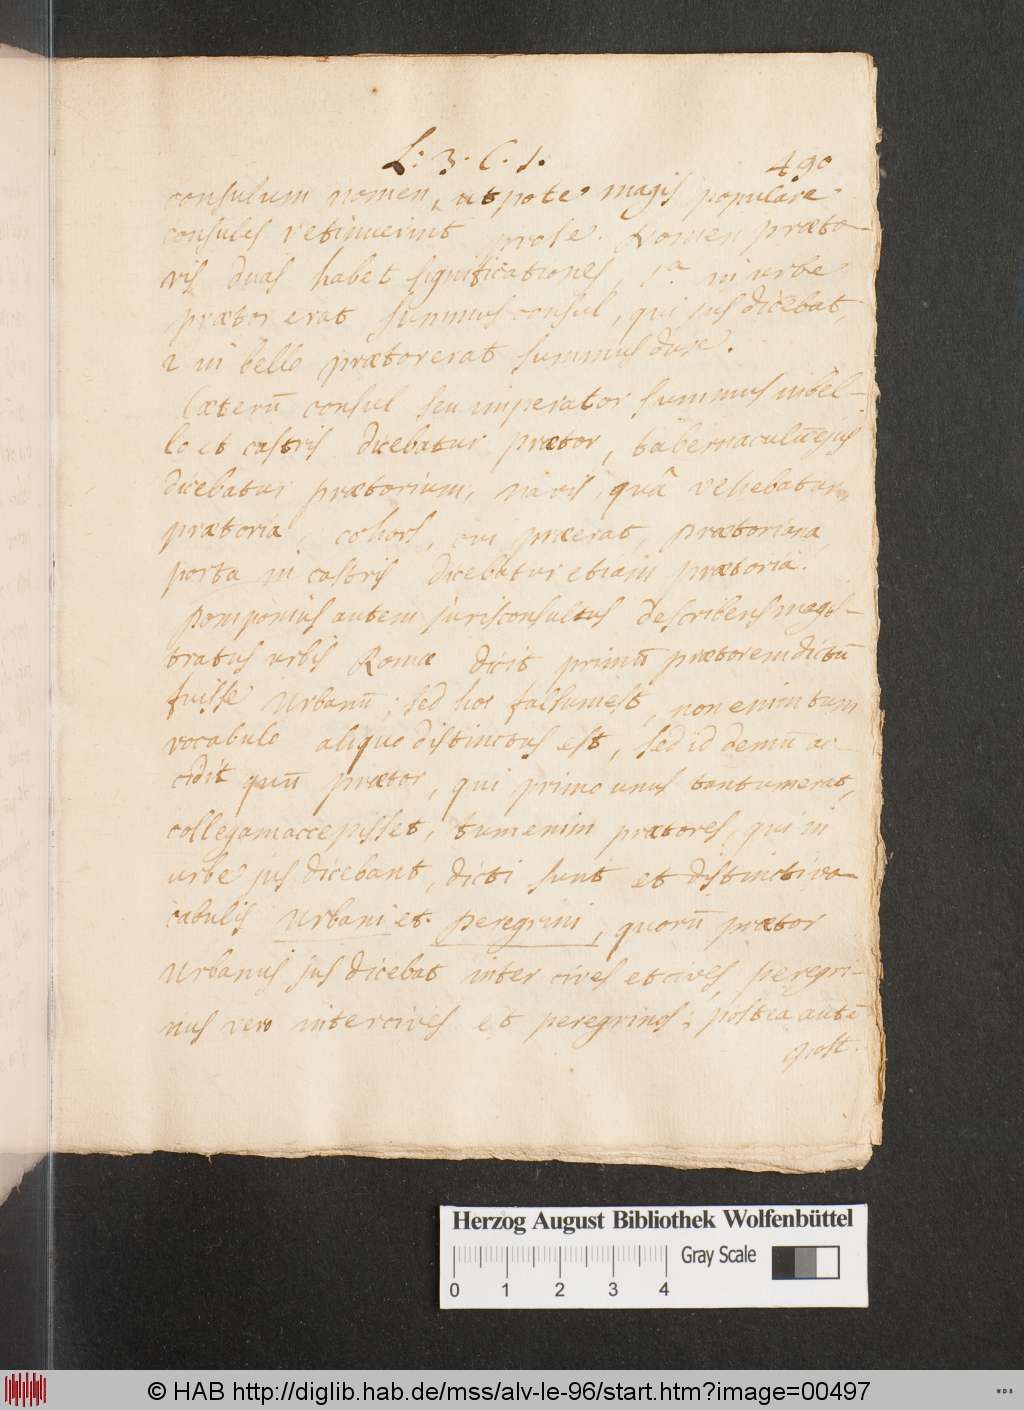 L: 3. C. 1.
490
consulum nomen, utpote magis populare
consules retinuerint prose. Nomen præto-
ris duas habet significationes, 1a in urbe
prætor erat summus consul, qui jus dicebat,
2 in bello prætor erat summus dux.
Cæterū consul seu imperator summus in bel-
lo et castris dicebatur prætor, tabernaculū ejus
dicebatur prætorium, navis, quâ vehebatur
prætoria, cohors, cui præerat, prætoriana,
porta in castris dicebatur etiam prætoria.
Pomponius autem jurisconsultus describens magis-
tratus urbis Romæ dicit primū prætorem dictū
fuisse Urbanū; sed hoc falsum est, non enim tum
vocabulo aliquo distinctus est, sed id demū ac-
cidit quū prætor, qui primo unus tantum erat,
collegam accepisset, tum enim prætores, qui in
urbe jus dicebant, dicti sunt et distincti vo-
cabulis Urbani et peregrini, quorū prætor
Urbanus jus dicebat inter cives et cives, peregri-
nus vero inter cives et peregrinos; postea autē
post.
Herzog August Bibliothek Wolfenbüttel
0 1 2 3 4
Gray Scale
© HAB http://diglib.hab.de/mss/alv-le-96/start.htm?image=00497